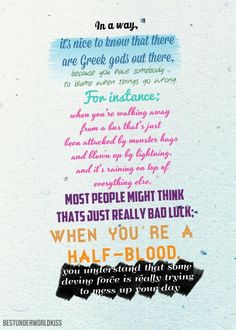 In a way,
it's nice to know that there
are Greek gods out there,
because you have somebody
to blame when things go wrong.
For instance;
when you're walking away
from a bus that's just
been attacked by monster hags
and blown up by lightning,
and it's raining on top of
everything else,
MOST PEOPLE MIGHT THINK
THATS JUST REALLY BAD LUCK;
WHEN YOU'RE A
HALF-BLOOD,
you understand that some
devine force is really trying
to mess up your day
BESTUNDERWORLDKISS